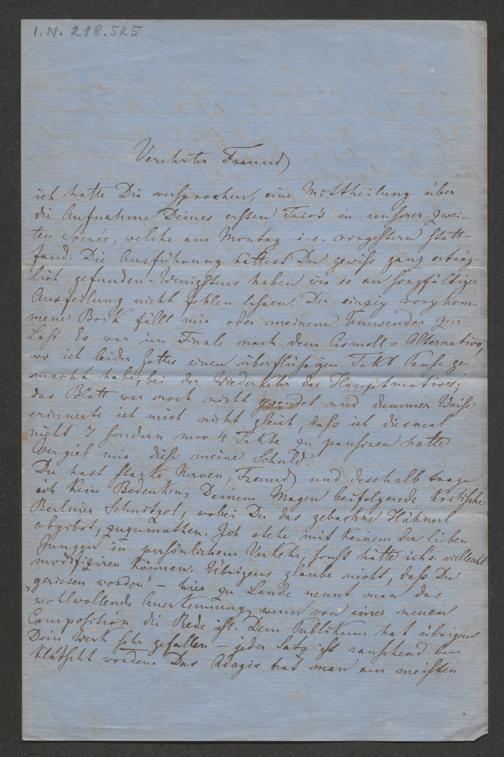 I.N. 218.525
Verehrter Freund,
ich hatte Dir versprochen, eine Mittheilung über
die Aufnahme Deines ersten Trios in unserer zwei-
ten Soirée, welche am Montag i.e. vorgestern statt-
fand. Die Ausführung hättest Du gewiß ganz erträg-
lich gefunden. Wenigstens haben wir es an sorgfältiger
Ausfeilung nicht fehlen lassen. Der einzig vorgekom-
mene Bock fällt mir oder meinem Umwender zur
Last. Es war im Finale nach dem Cismoll Alternativo,
wo ich leider Gottes einen überflüßigen Takt Pause ge-
macht habe, bei der Wiederkehr des Hauptmotives;
das Blatt war noch nicht gewendet und dummer Weise
erinnerte ich mich nicht gleich, daß ich diesmal
nicht 7 sondern nur 4 Takte zu pausiren hatte.
Vergieb mir diese meine Schuld.
Du hast starke Nerven, Freund, und deßhalb trage
ich kein Bedenken, Deinem Magen beifolgende kritische
Berliner Schnitzel, wobei Du das gebackne Hähnerl
abgibst, zuzumuthen. Ich stehe mit keinem der lieben
Jungen in persönlichem Verkehr, sonst hätte ich's vielleicht
modifiziren können. Übrigens glaube nicht, daß Du
"gerissen worden" – hier zu Lande nennt man das
wohlwollende Anerkennung, wenn von einer neuen
Composition die Rede ist. Dem Publikum hat übrigens
Dein Werk sehr gefallen – jeder Satz ist rauschend be-
klatscht worden. Das Adagio hat man am meisten